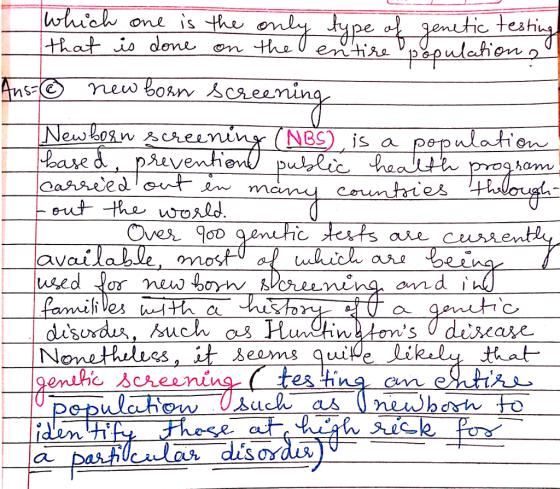 which one is the only type of genetic testing
that is done on the entire population?
Ans=ⓒ new born screening
Newborn screening (NBS), is a population
based, prevention public health program
carried out in many countries through-
-out the world.
Over 900 genetic tests are currently
available, most of which are being
used for new born screening and in
families with a history of a genetic
disorder, such as Huntington's disease
Nonetheless, it seems quite likely that
genetic screening (testing an entire
population such as newborn to
identify those at high risk for
a particular disorder)